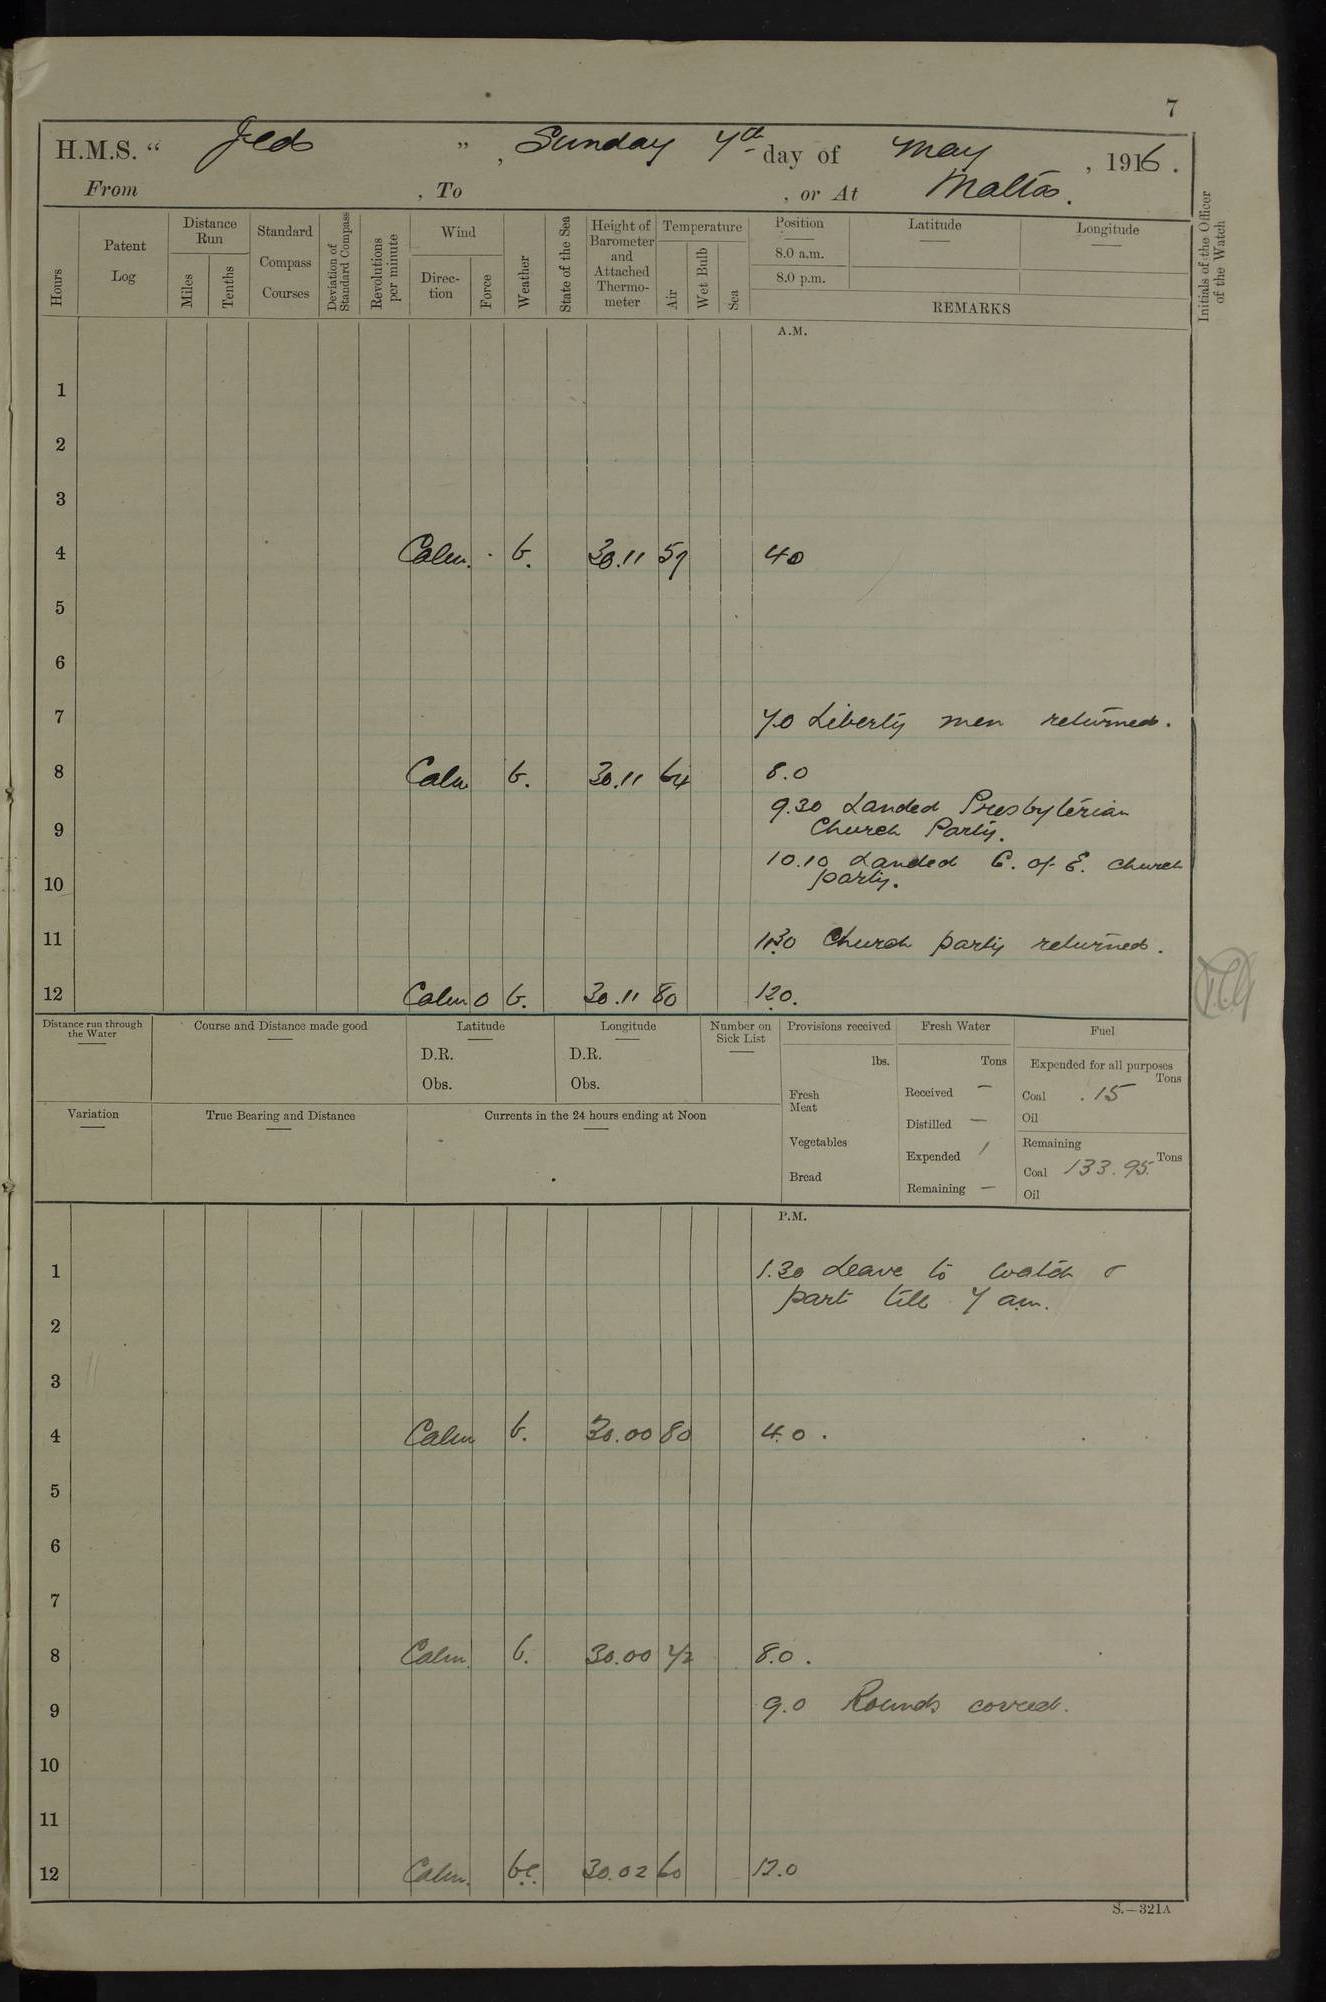 7
H.M.S. “ Jed ”, Sunday 7th day of May, 1916.
From , To , or At Malta.
Hours
Patent Log
Distance Run
Miles
Tenths
Standard Compass Courses
Deviation of Standard Compass
Revolutions per minute
Wind
Direction
Force
Weather
State of the Sea
Height of Barometer and Attached Thermometer
Temperature
Air
Wet Bulb
Sea
Position
8.0 a.m.
8.0 p.m.
Latitude
Longitude
REMARKS
Initials of the Officer of the Watch
A.M.
1
2
3
4 Calm. · b. 30.11 59 40
5
6
7 7.0 Liberty men returned.
8 Calm b. 30.11 64 8.0
9.30 Landed Presbyterian
9 Church Party.
10.10 Landed C. of E. church
10 party.
11 11.30 Church party returned.
12 Calm 0 b. 30.11 80 12.0.
Distance run through the Water
Course and Distance made good
Latitude
D.R.
Obs.
Longitude
D.R.
Obs.
Number on Sick List
Provisions received
lbs.
Fresh Meat
Vegetables
Bread
Fresh Water
Tons
Received —
Distilled —
Expended 1
Remaining —
Fuel
Expended for all purposes
Tons
Coal .15
Oil
Remaining
Tons
Coal 133.95.
Oil
Variation
True Bearing and Distance
Currents in the 24 hours ending at Noon
P.M.
1 1.30 Leave to watch &
part till 7 am.
2
3
4 Calm b. 30.00 80 4.0.
5
6
7
8 Calm. b. 30.00 72 8.0.
9 9.0 Rounds correct.
10
11
12 Calm. bc. 30.02 60 12.0
S.—321A